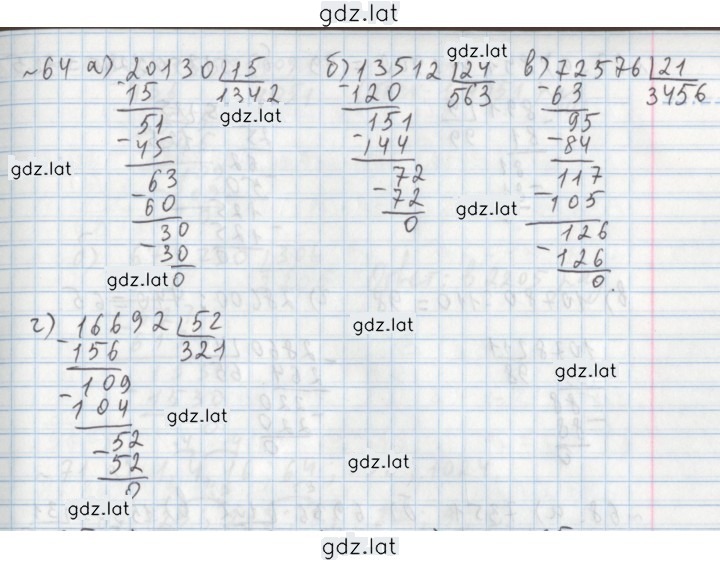 gdz.lat
~64 а) 20130 15 б) 13512 24 в) 72576 21
gdz.lat
-15 1342 -120 563 -63 3456
51 gdz.lat 151 95
-45 -144 -84
gdz.lat 63 72 117
-60 -72 gdz.lat -105
30 0 126
-30 -126
gdz.lat 0 0.
г) 16692 52 gdz.lat
-156 321
109 gdz.lat
-104 gdz.lat
52
-52 gdz.lat
0
gdz.lat
gdz.lat